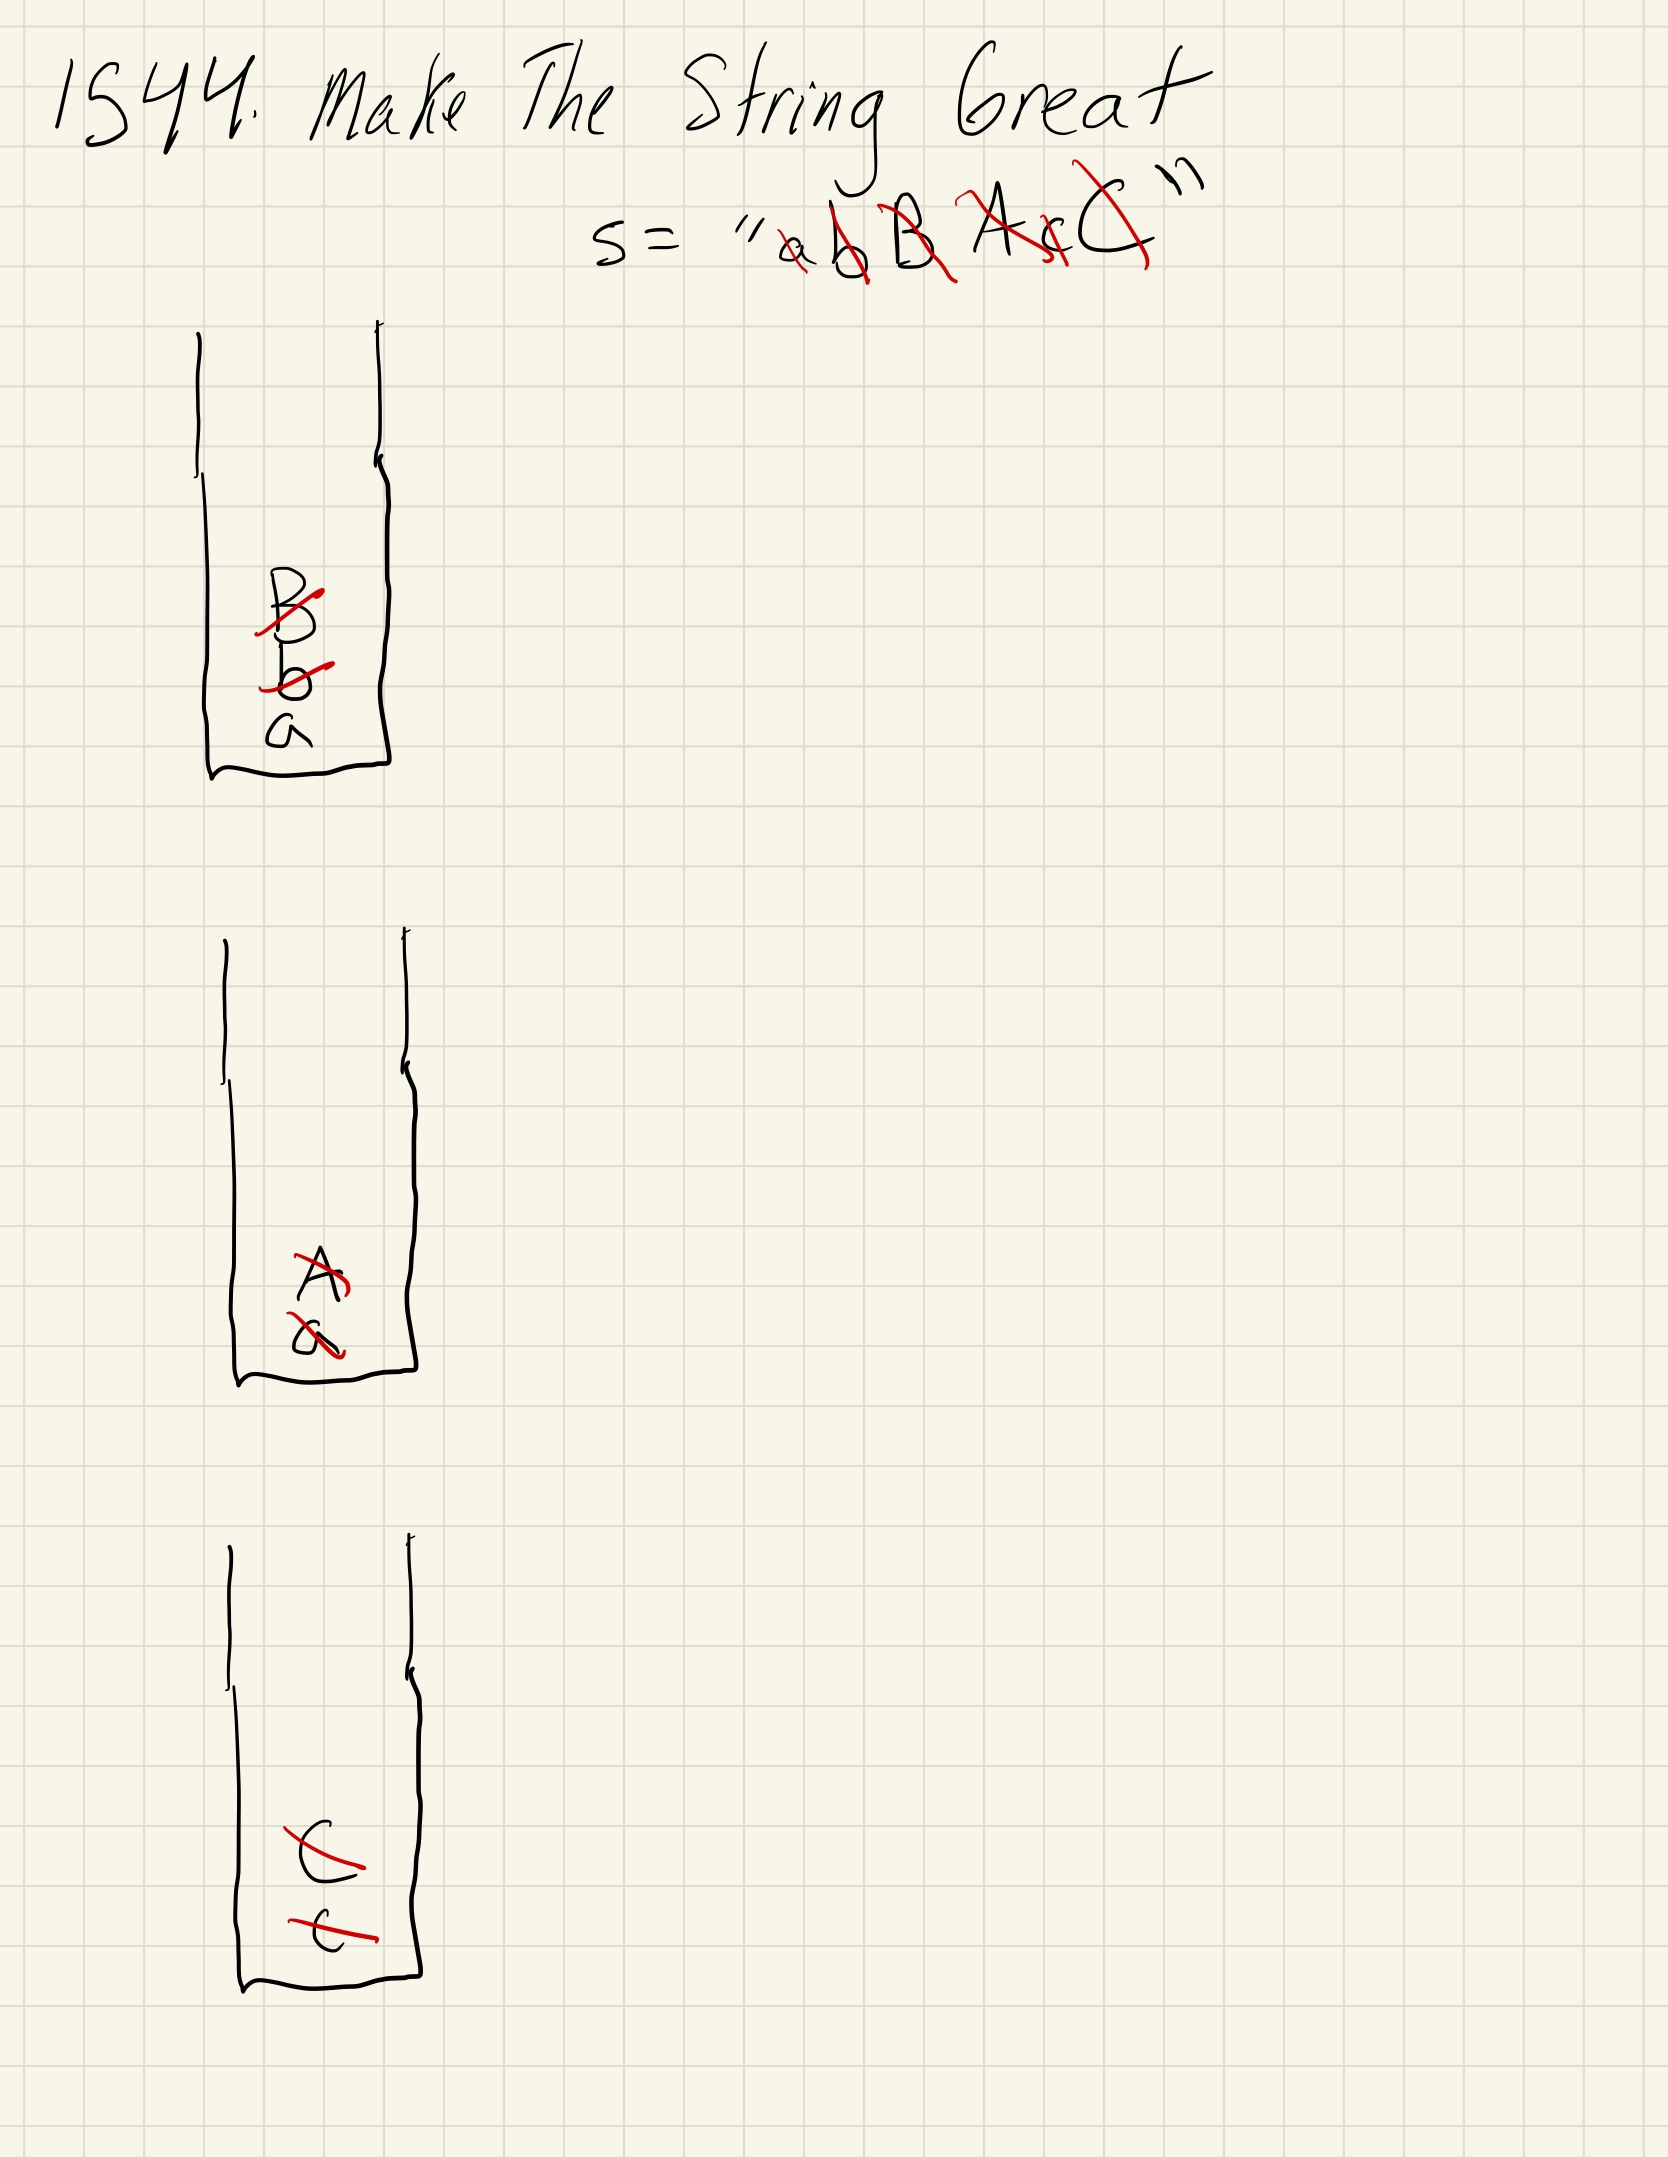 1544. Make The String Great
s = "abBAcC"
B
b
a
A
a
C
c